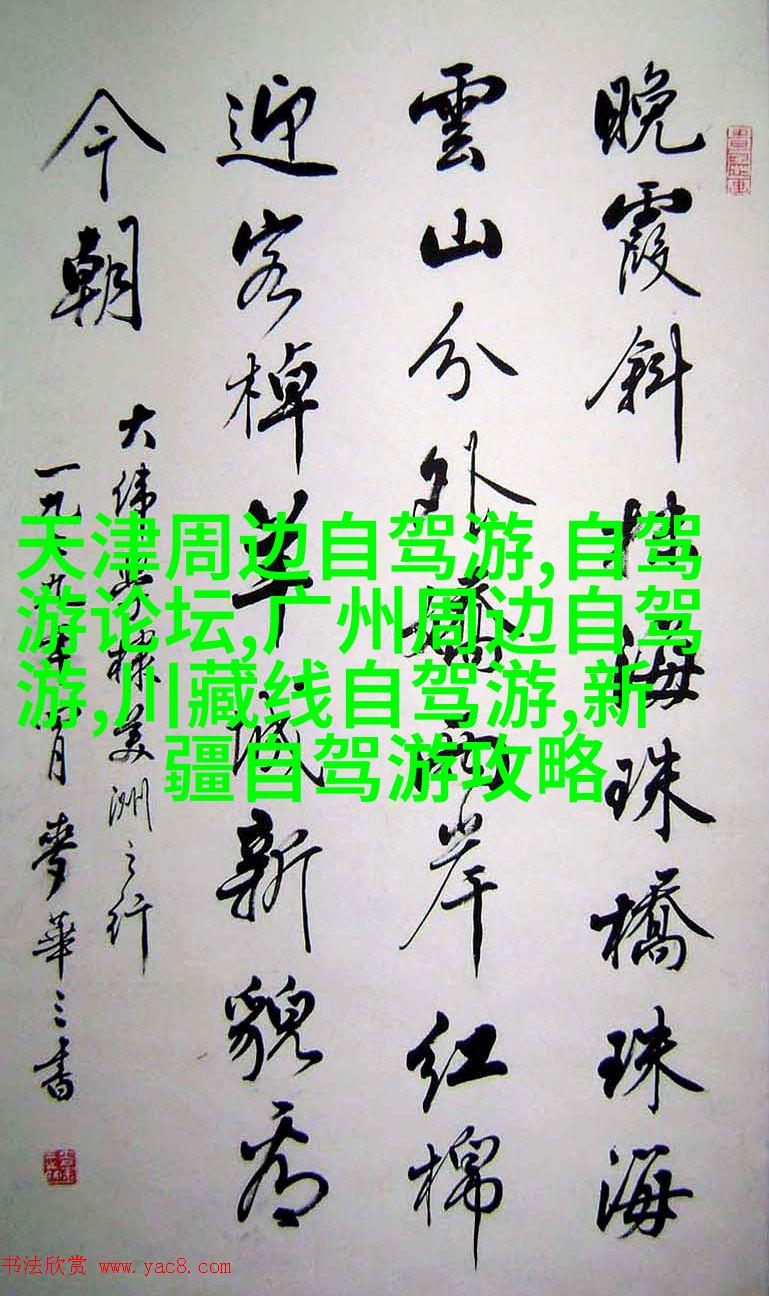 晚霞斜挂海珠橋珠海
雲山分外嬌兩岸红棉
迎客棹羊城新貌看
今朝
大美洲之行
一九年月麥華三書
天津周边自驾游,自驾
游论坛,广州周边自驾
游,川藏线自驾游,新
疆自驾游攻略
书法欣赏 www.yac8.com